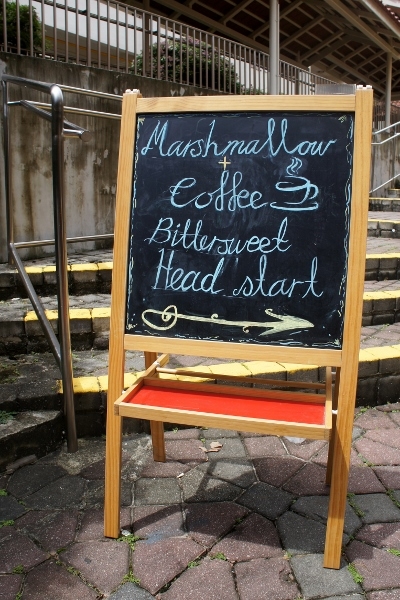 Marshmallow
+
Coffee
Bittersweet
Head start